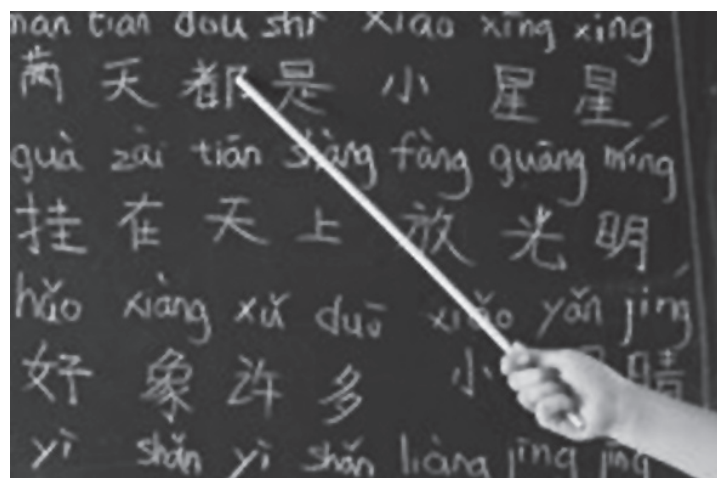 mǎn tiān dōu shì xiǎo xīng xīng
满 天 都 是 小 星 星
guà zài tiān shàng fàng guāng míng
挂 在 天 上 放 光 明
hǎo xiàng xǔ duō xiǎo yǎn jīng
好 象 许 多 小 睛
yì shǎn yì shǎn liàng jīng jīng